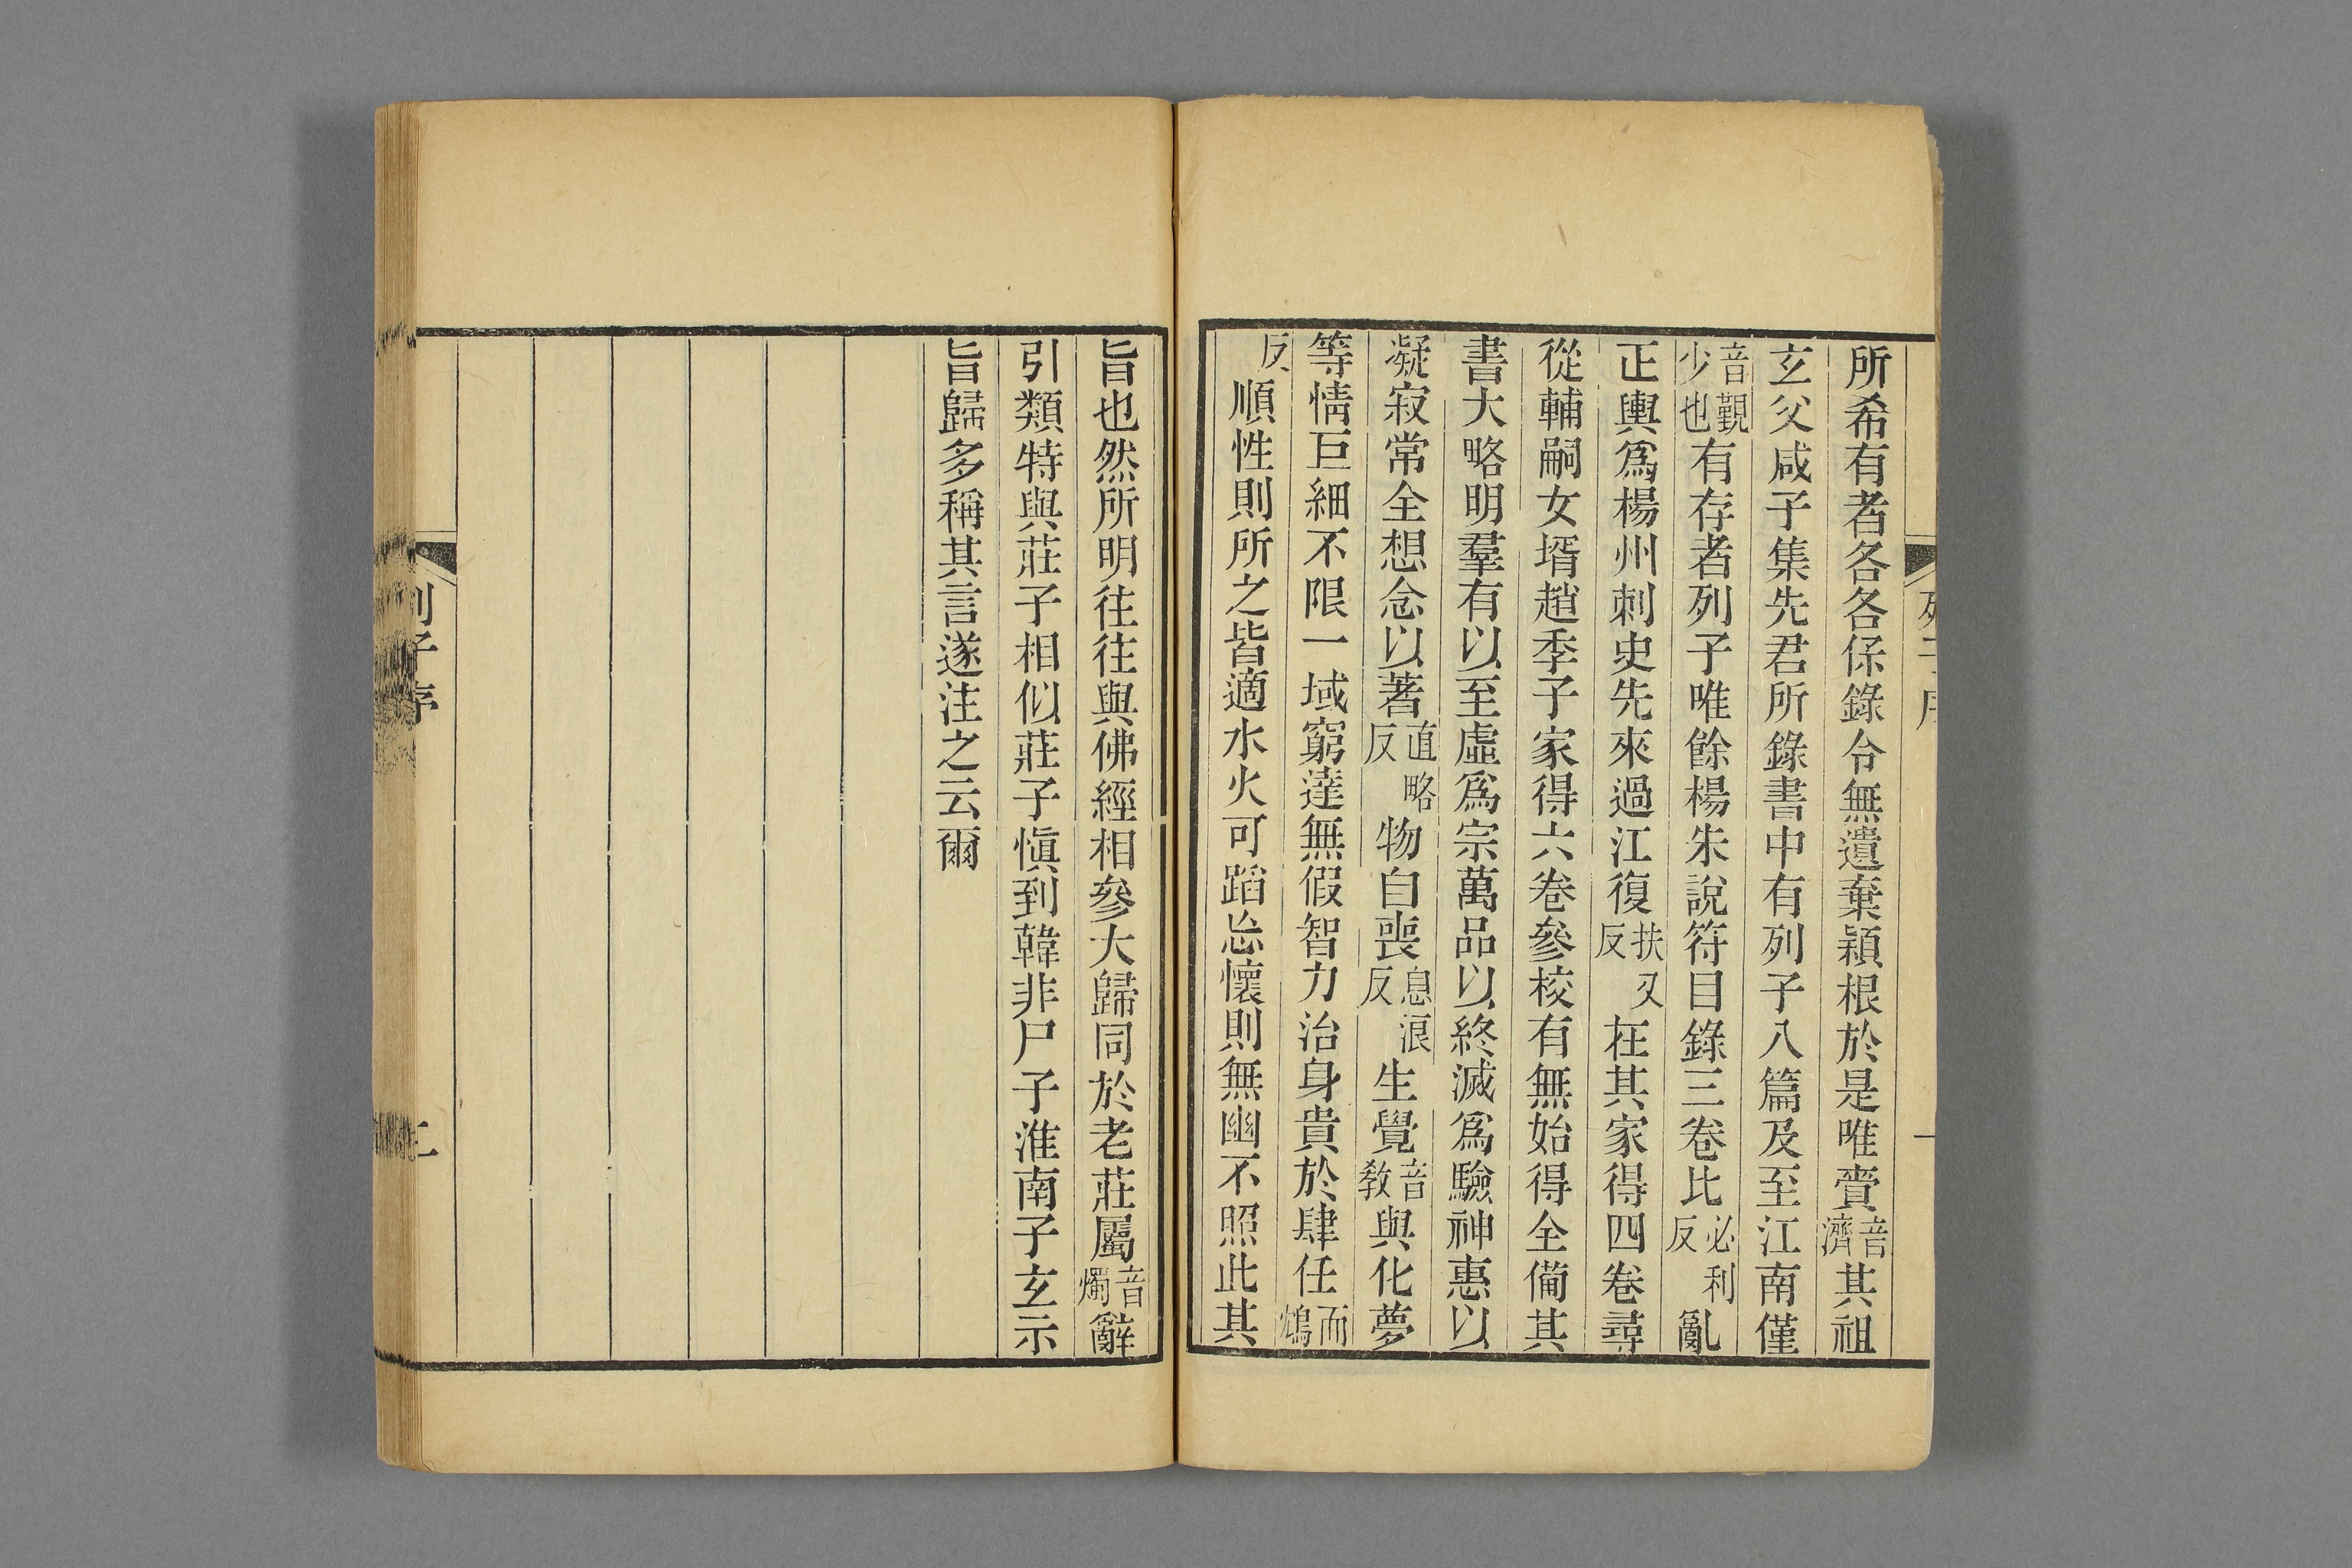 所希有者各各保錄令無遺棄穎根於是唯賷音濟其祖
玄父咸子集先君所錄書中有列子八篇及至江南僅
音觀少也有存者列子唯餘楊朱說符目錄三卷比必利反亂
正輿爲楊州刺史先來過江復扶又反在其家得四卷尋
從輔嗣女壻趙季子家得六卷參校有無始得全備其
書大略明羣有以至虛爲宗萬品以終滅爲驗神惠以
凝寂常全想念以著直略反物自喪息浪反生覺音敎與化夢
等情巨細不限一域窮達無假智力治身貴於肆任而鴆
反順性則所之皆適水火可蹈忘懷則無幽不照此其
旨也然所明往往與佛經相參大歸同於老莊屬音燭辭
引類特與莊子相似莊子愼到韓非尸子淮南子玄示
旨歸多稱其言遂注之云爾
列子序
二